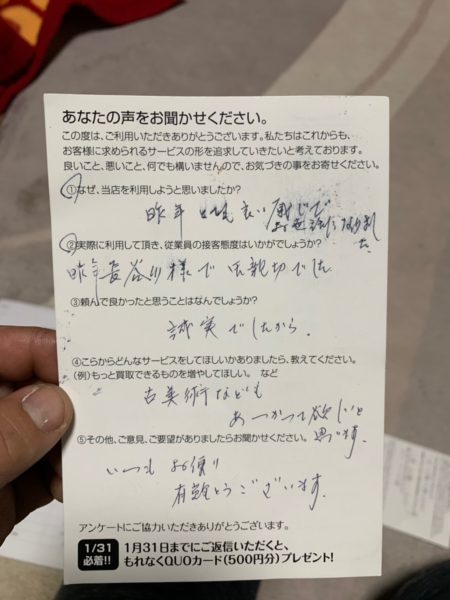 あなたの声をお聞かせください。
この度は、ご利用いただきありがとうございます。私たちはこれからも、
お客様に求められるサービスの形を追求していきたいと考えております。
良いこと、悪いこと、何でも構いませんので、お気づきの事をお寄せください。
①なぜ、当店を利用しようと思いましたか?
昨年 とても良い 感じで
お世話になりました
②実際に利用して頂き、従業員の接客態度はいかがでしょうか?
昨年長谷川様で 親切でした
③頼んで良かったと思うことはなんでしょうか?
誠実でしたから。
④こらからどんなサービスをしてほしいかありましたら、教えてください。
(例)もっと買取できるものを増やしてほしい。 など
古美術なども
あつかって欲しいと
思います。
⑤その他、ご意見、ご要望がありましたらお聞かせください。
いつも お便り
有難とうございます。
アンケートにご協力いただきありがとうございます。
1/31
必着!!
1月31日までにご返信いただくと、
もれなくQUOカード(500円分)プレゼント!